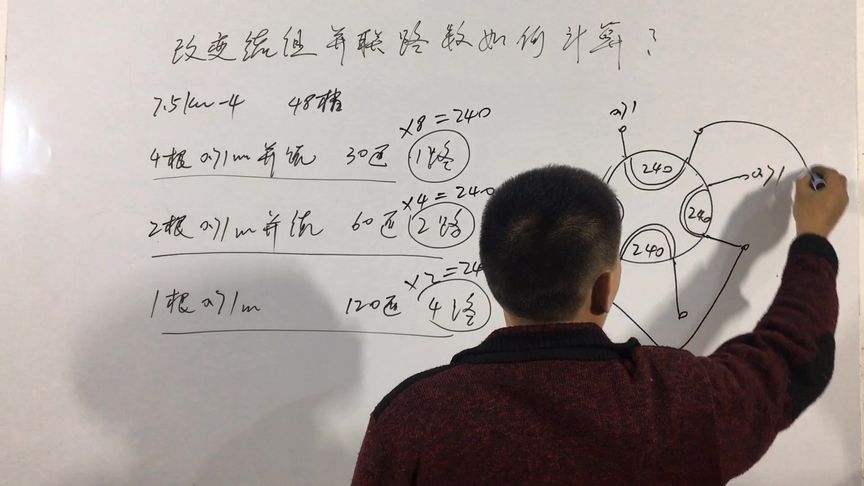 改变绕组并联路数如何计算？
7.5kw-4 48槽
×8=240
4根0.71m并绕 30匝 1路
×4=240
2根0.71m并绕 60匝 2路
×2=24
1根0.71m 120匝 4路
0.71
240
0.71
240
240